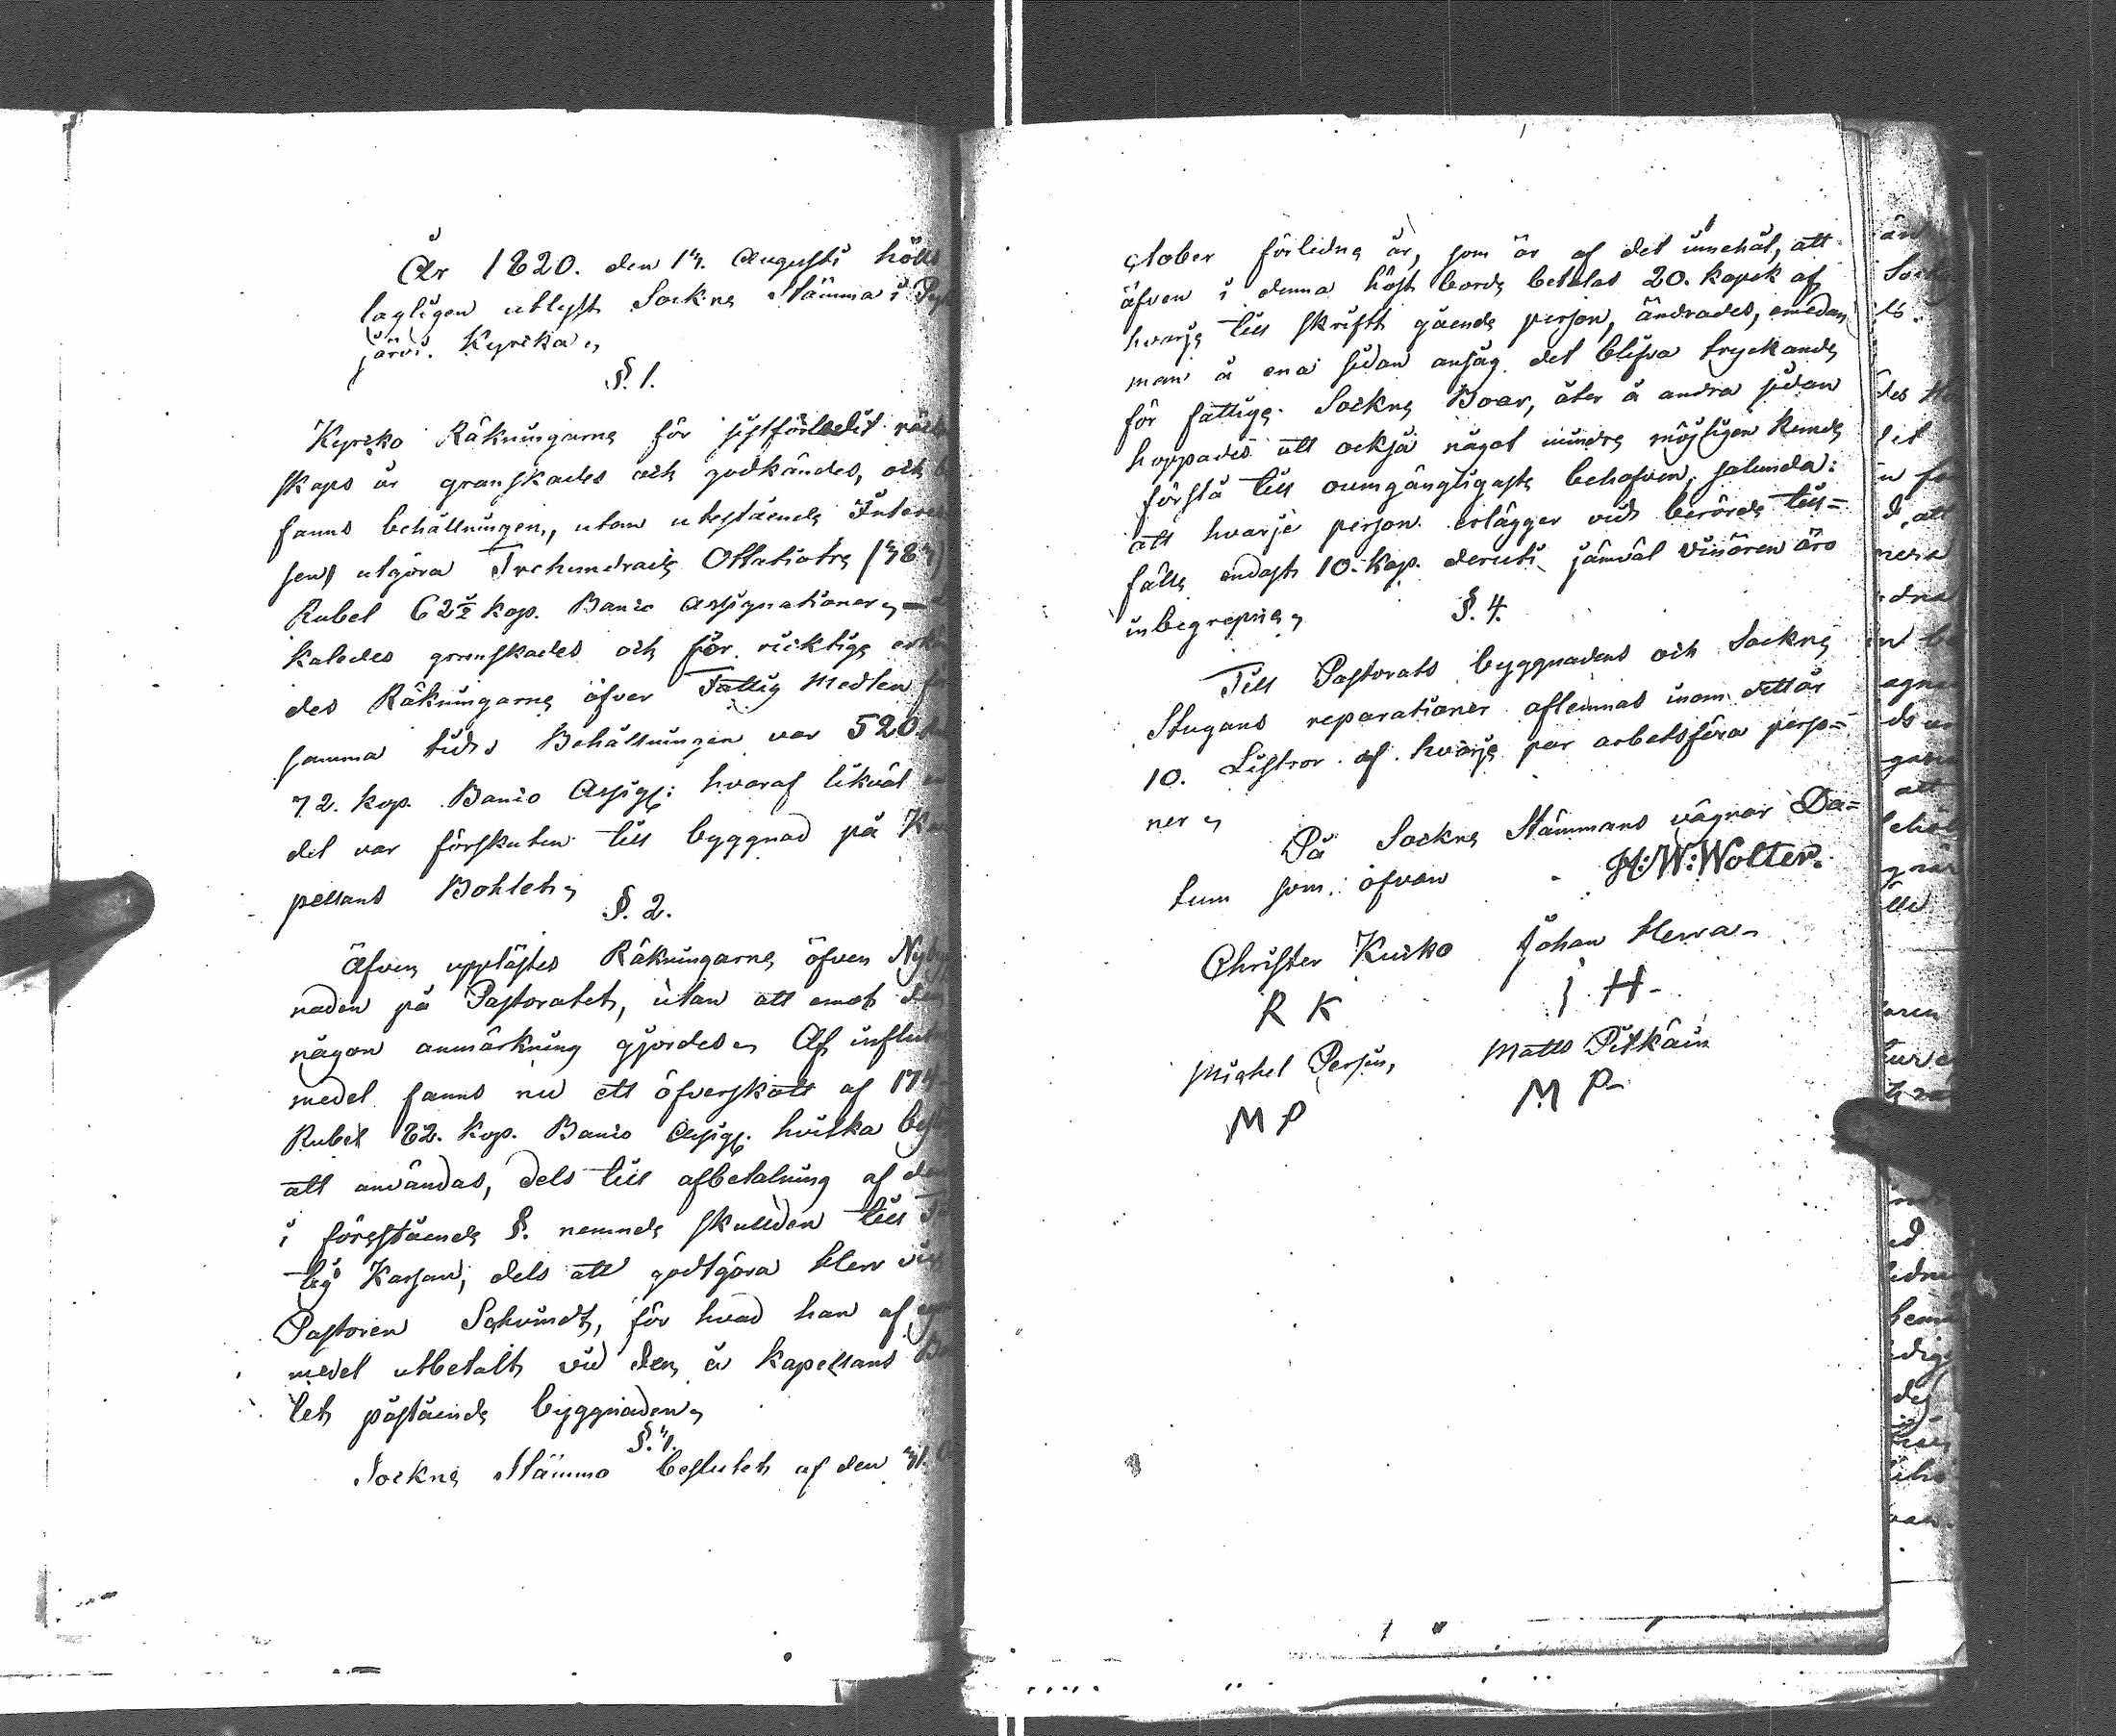 År 1820. den 13. Augusti hölls
lagligen utlyst Sockne Stämma i Pyhä
järvi. Kyrcka,
§. 1.
Kyrcko Räkningarne för sistförledit räken
skaps år granskades och godkändes, och be
fanns behållningen, utom utestående Intres
sen, utgöra Trehundrade Ottatiotre (383)
Rubel 62½ kop. Banco Assignationer, —
kaledes granskades och för ricktige erkän
des Räkningarne öfver Fattig Medlen för
samma tid. Behållningen var 520.
72. kop. Banco Assign: hvaraf likväl en
del var förskuten till byggnad på Ka
pellans Bohlet,
§. 2.
Äfven upplästes Räkningarne öfver Nybygg
naden på Pastoratet, utan att emot den
någon anmärkning gjordes, Af influtne
medel fanns nu ett öfverskott af 173
Rubel 82. kop. Banco Assign. hvilka
att användas, dels till afbetalning af den
i förestående §. nemnde skulden till Fat
tig Kassan, dels att godtgöra Herr vice
Pastoren Schvindt, för hvad han af egne
medel utbetalt vid den å kapellans Bo
let påstående byggnaden,
§. 3.
Sockne Stämmo beslutet af den 31. O
ctober förledne år, som är af det innehåt, att
äfven i denna höst borde betalas 20. kopek af
hvarje till skrift gående person, ändrades, emedan
man å ena sidan ansåg det blifva tryckande
för fattige Sockne Boar, åter å andra sidan
hoppades att också något mindre möjligen kunde
förslå till oumgängligaste behofven, salunda:
att hvarje person erlägger vid berörde till=
fälle endast 10. kop. deruti jämväl vinören äro
inbegrepne,
§. 4.
Till Pastorats byggnadens och Sockne
Stugans reparationer aflemnas inom dettår
10. Listror af hvarje par arbetsföra perso=
ner,
På Sockne Stämmans vägnar Da=
tum som ofvan H:W:Wolter.
Christer Kuicko Johan Herra
R K I H
Michel Persin, Matts Pitkäin
M P M P